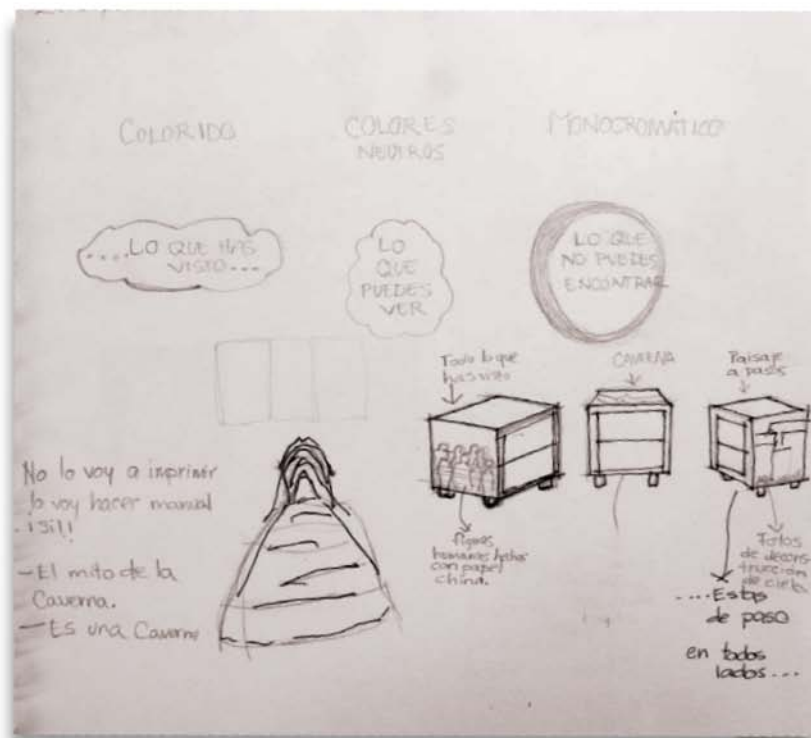 COLORIDO
COLORES
NEUTROS
MONOCROMÁTICO
....LO QUE HAS
VISTO...
LO
QUE
PUEDES
VER
LO QUE
NO PUEDES
ENCONTRAR
Todo lo que
has visto
CAVERNA
Paisaje
a pasos
No lo voy a imprimir
lo voy hacer manual
¡SII!
- El mito de la
Caverna.
- Es una Caverna
figuras
humanas hechas
con papel
china.
Fotos
de decons
trucción
de cielo
....Estas
de paso
en todos
lados...